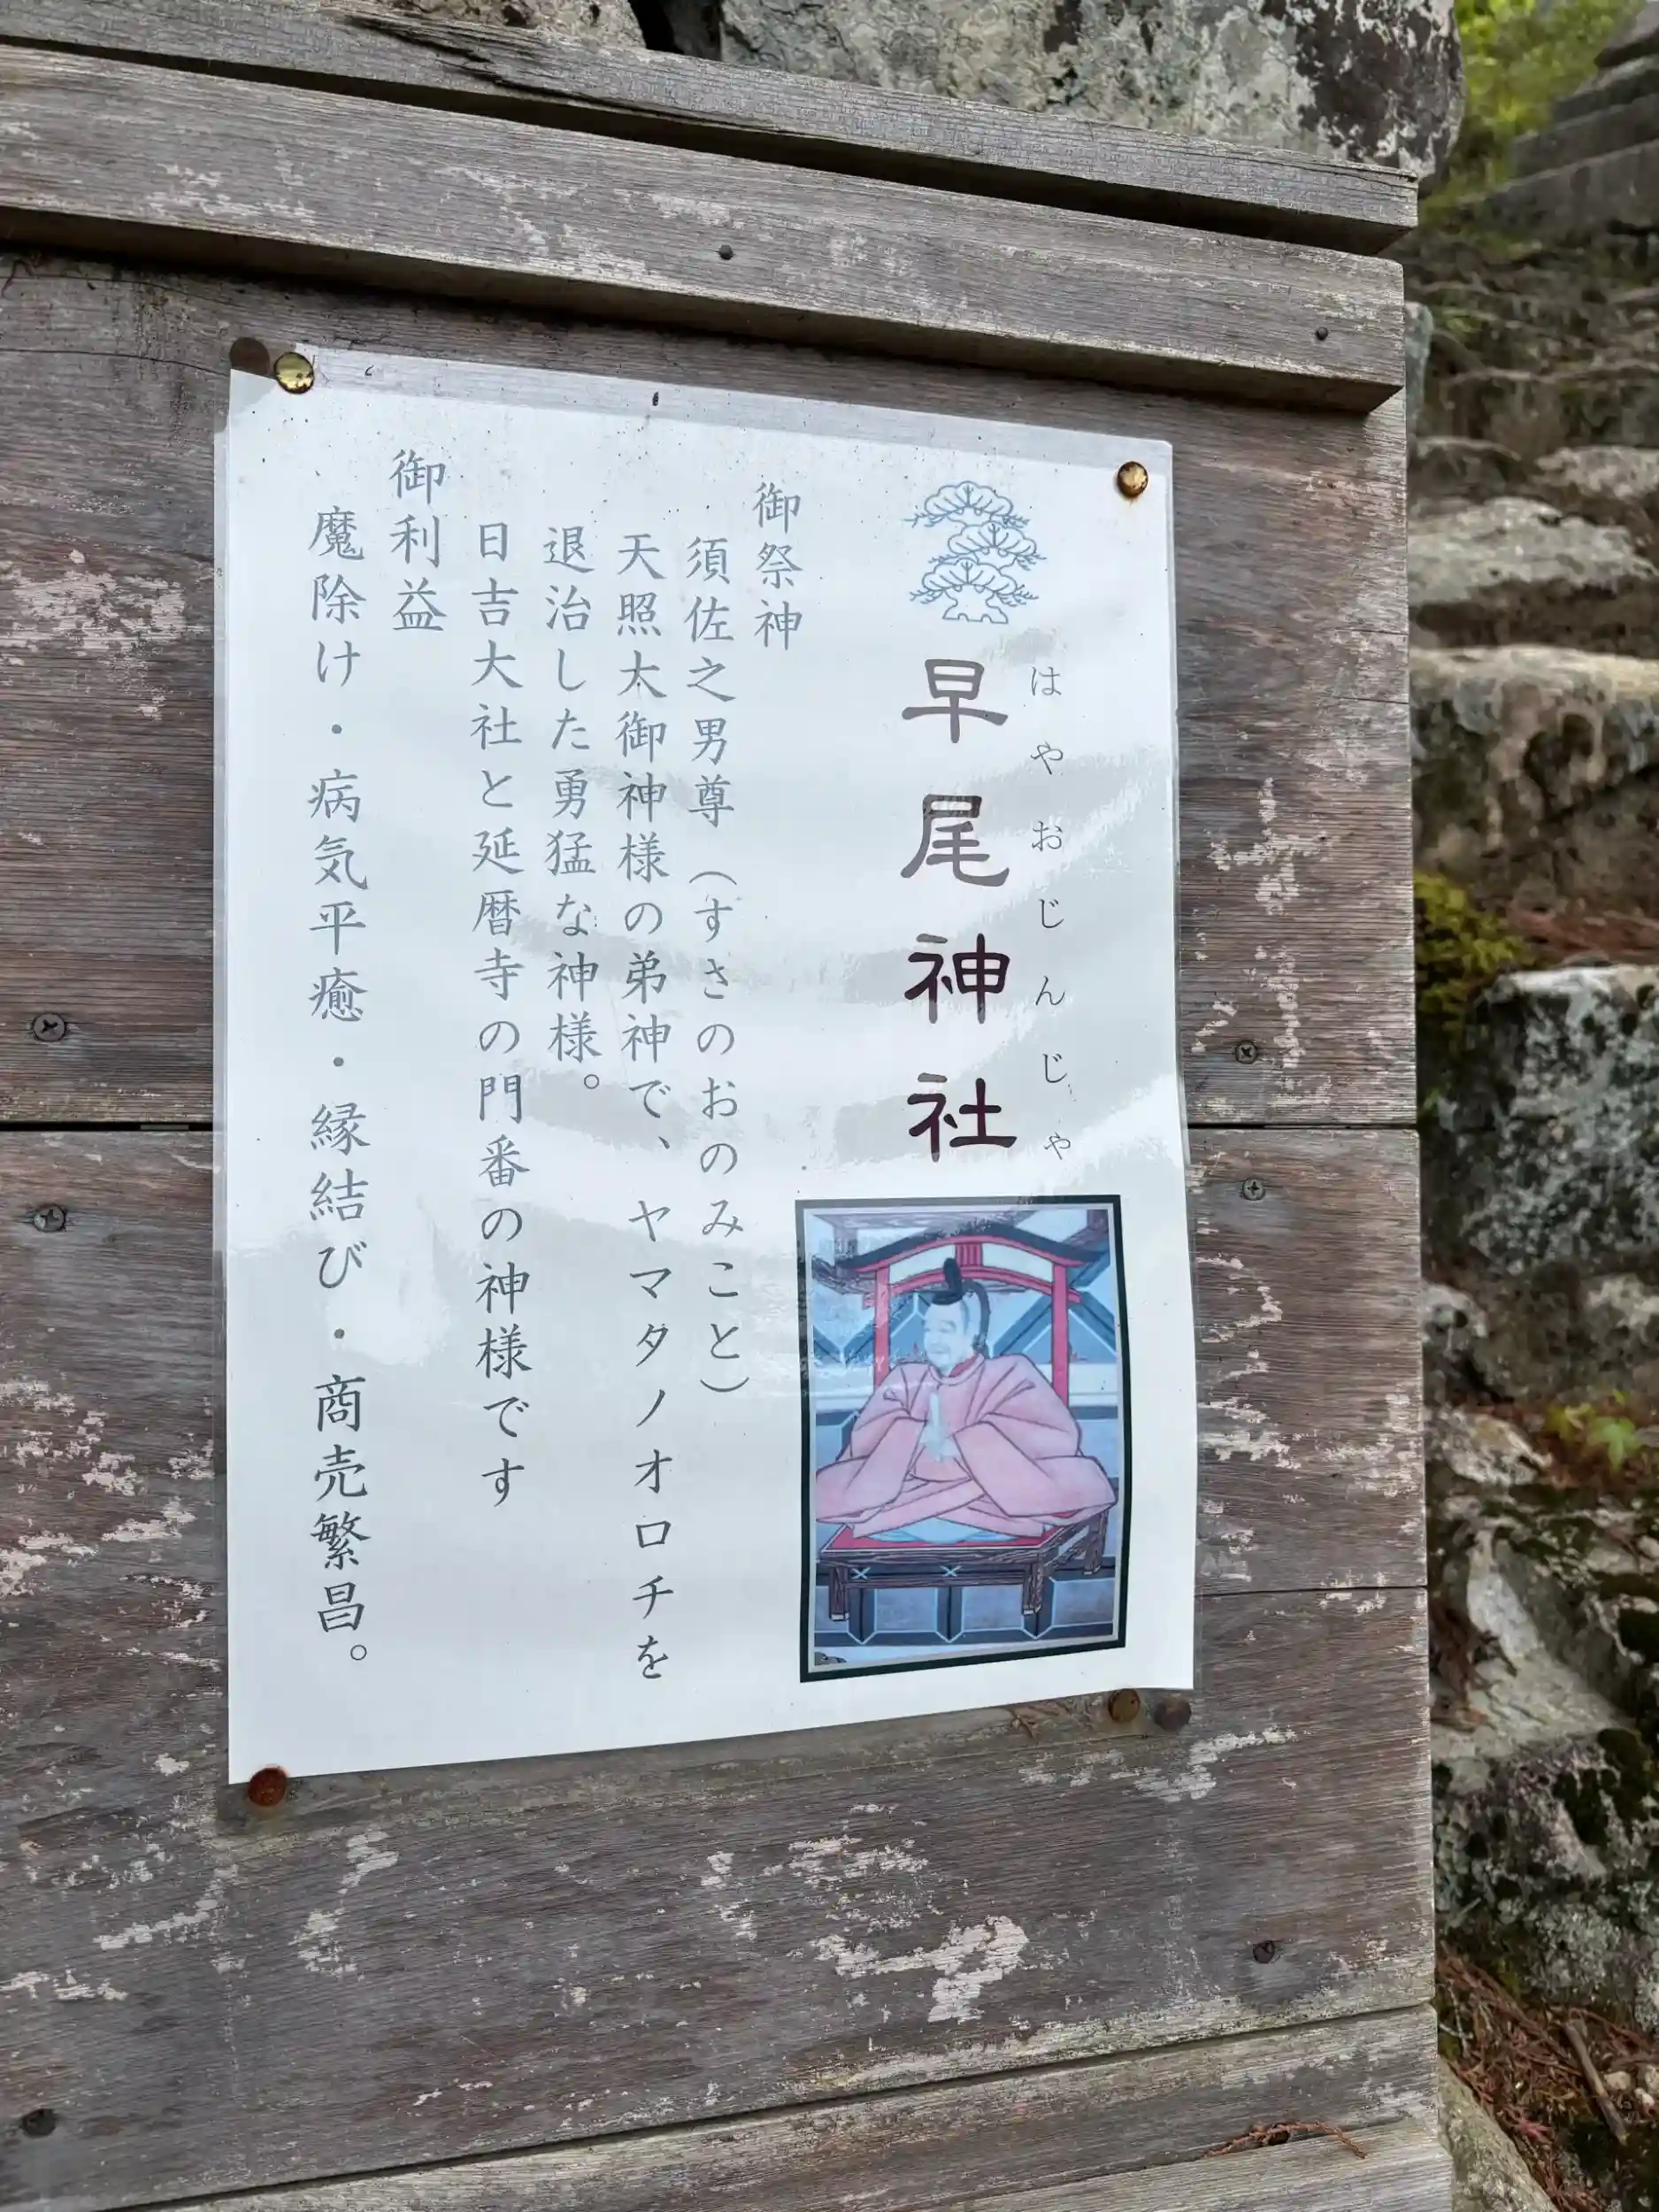 早尾神社
はやおじんじゃ
御祭神
須佐之男尊（すさのおのみこと）
天照太御神様の弟神で、ヤマタノオロチを
退治した勇猛な神様。
日吉大社と延暦寺の門番の神様です
御利益
魔除け・病気平癒・縁結び・商売繁昌。